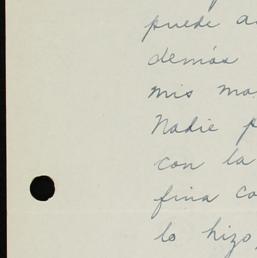 puede a
demás
mis ma
Nadie p
con la
fina co
lo hizo,